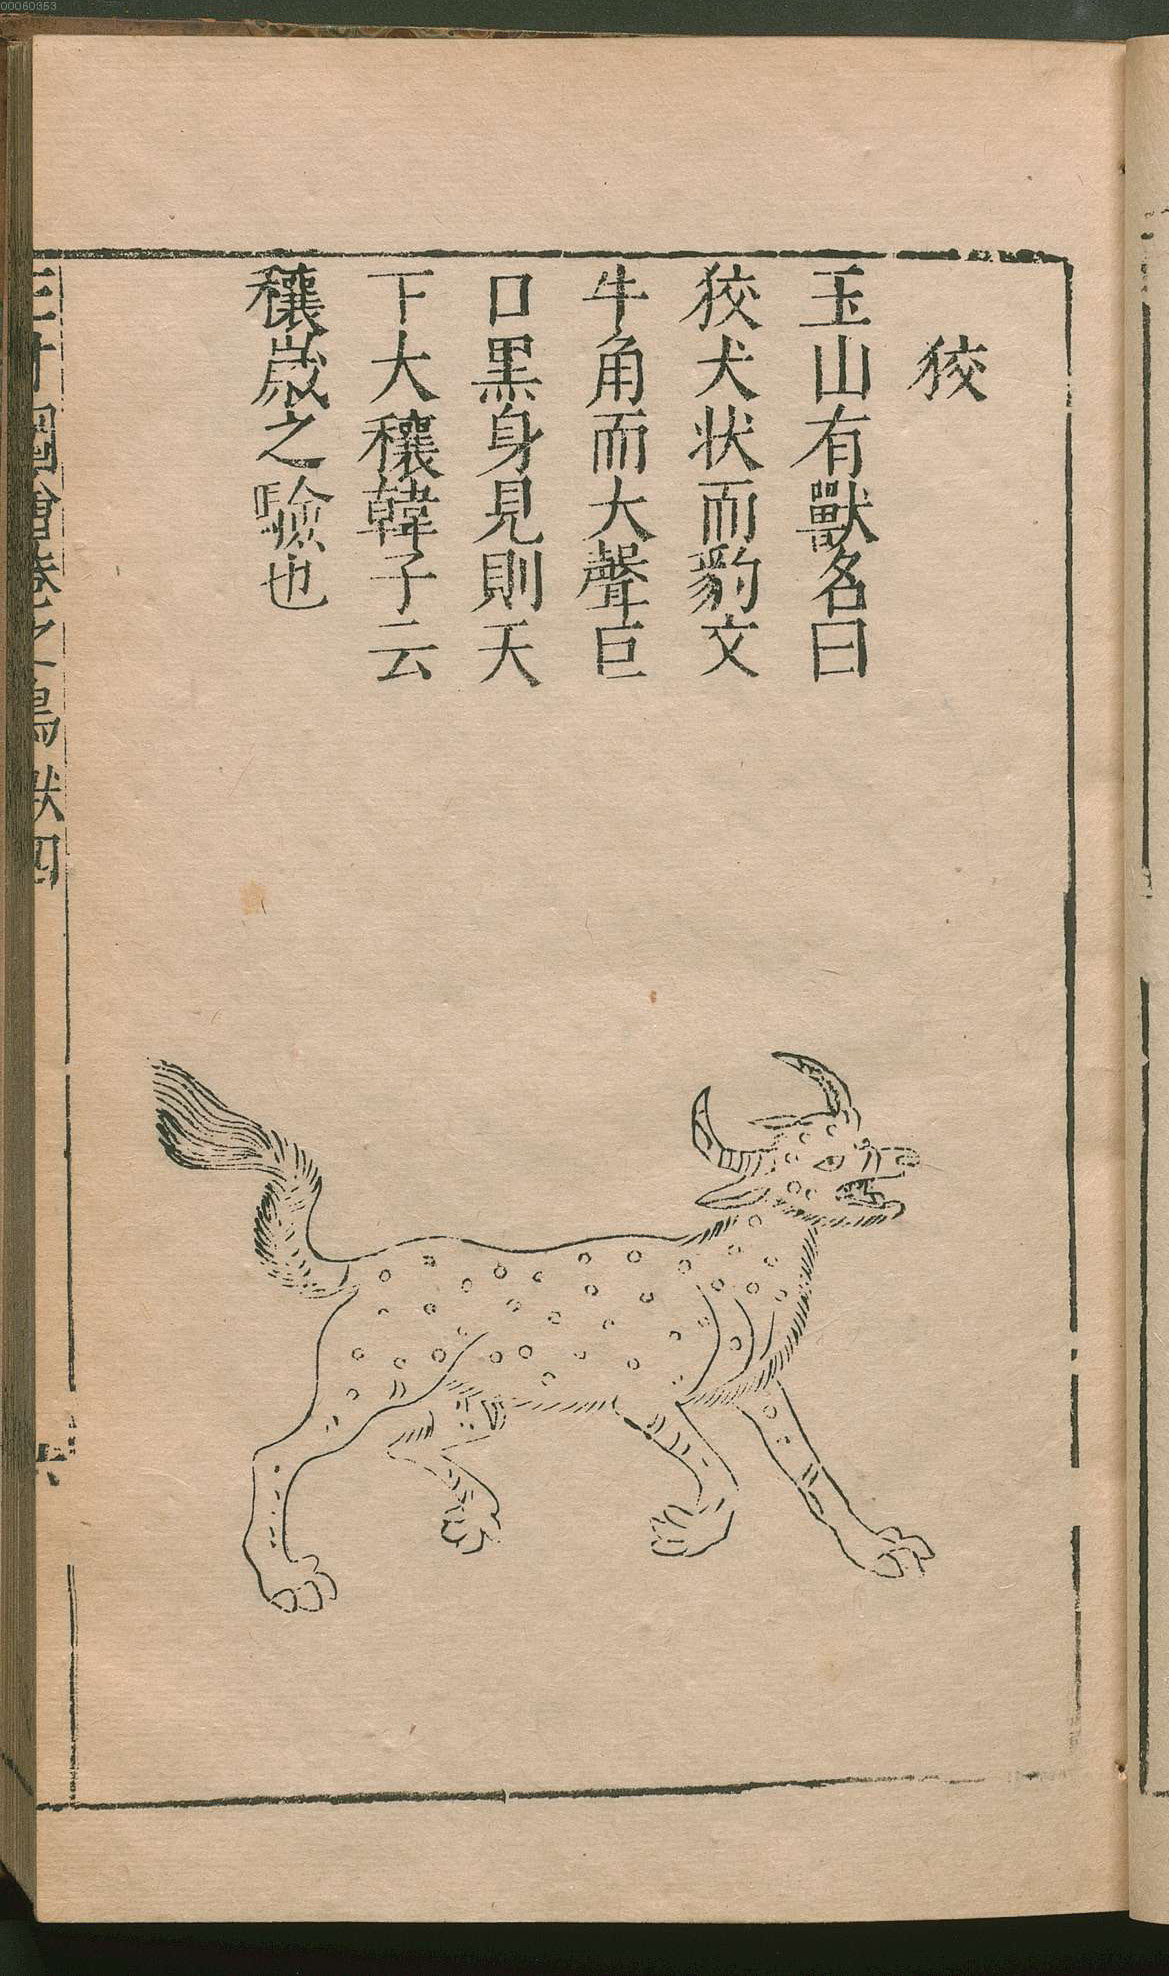 狡
玉山有獸名曰
狡犬状而豹文
牛角而大聲巨
口黑身見則天
下大穰韓子云
穰歲之驗也
三才圖會卷之鳥獸四
00060353